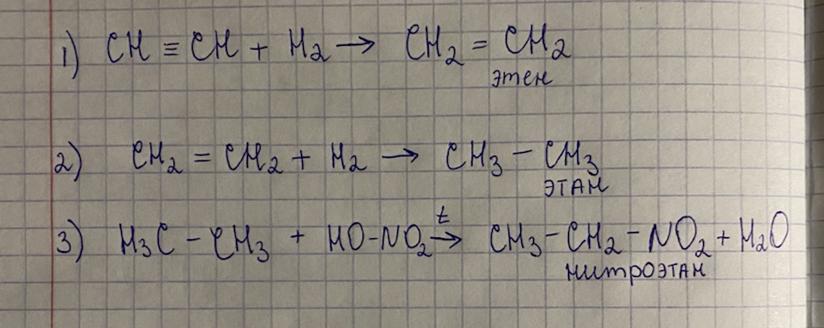 1) CH ≡ CH + H₂ → CH₂ = CH₂
этен
2) CH₂ = CH₂ + H₂ → CH₃ – CH₃
этан
3) H₃C – CH₃ + HO-NO₂ t→ CH₃-CH₂-NO₂ + H₂O
нитроэтан